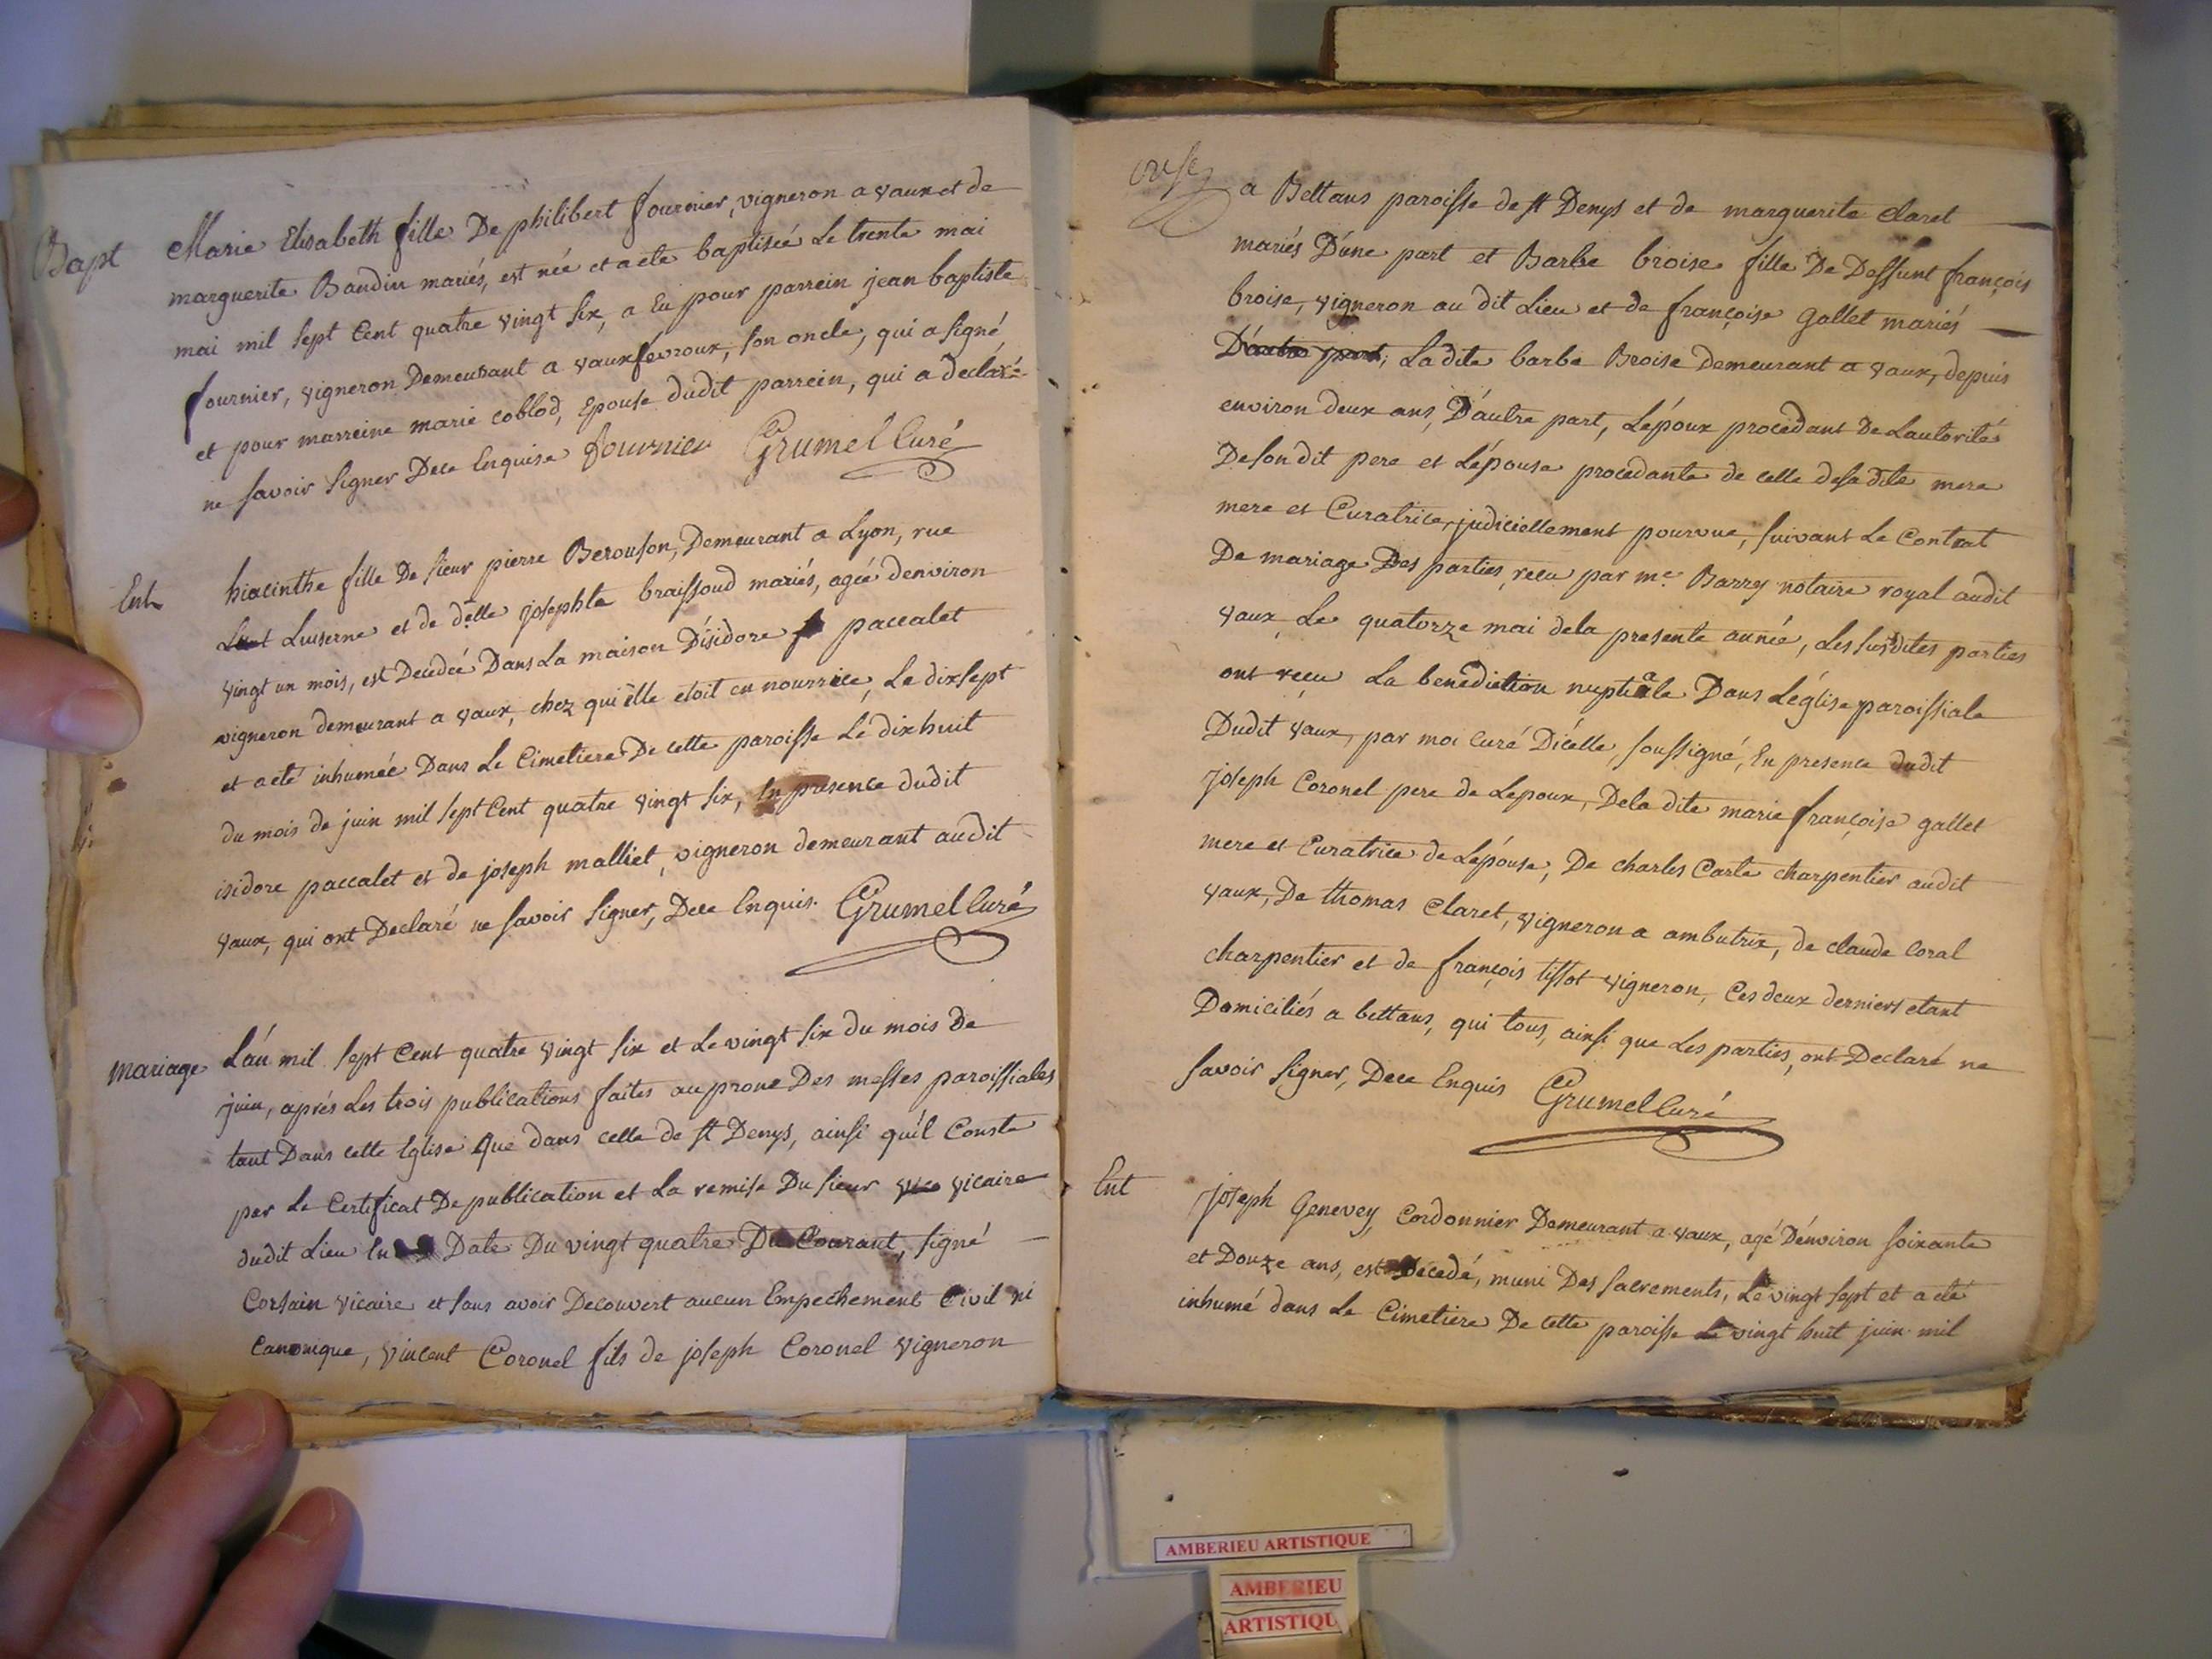 Bapt
Marie Elisabeth fille De philibert fournier, vigneron a vaux et de
marguerite Baudin mariés, est née et a eté baptiseé Le trente mai
mai mil sept Cent quatre vingt six, a Eu pour parrein jean baptiste
fournier, vigneron Demeurant a vauxfevroux, son oncle, qui a signé
et pour marreine marie coblod, Epouse dudit parrein, qui a declaré
ne savoir signer Dece Enquise fournier Grumel Curé
Ent
hiacinthe fille De sieur pierre Berouson, Demeurant a Lyon, rue
Luiserne et de delle josephte braissoud mariés, ageé denviron
vingt un mois, est Decedeé Dans La maison D'isidore paccalet
vigneron demeurant a vaux, chez qui elle etoit en nourrice, Le dixsept
et aeté inhumeé Dans Le Cimetiere De cette paroisse Le dixhuit
du mois de juin mil sept Cent quatre vingt six, En presence dudit
isidore paccalet et de joseph malliet, vigneron demeurant audit
vaux, qui ont Declaré ne savoir signer, Dece Enquis. Grumel Curé
mariage
L'an mil sept Cent quatre vingt six et Le vingt six du mois De
juin, aprés Les trois publications faites au prone Des messes paroissiales
tant Dans cette Eglise Que dans celle de st Denys, ainsi qu'il Conste
par Le Certificat De publication et La remise Du sieur vicaire
dudit Lieu En Date Du vingt quatre Du Courant, signé
Corsain vicaire et sans avoir Decouvert aucun Empechement Civil ni
Canonique, vincent Coronel fils de joseph Coronel vigneron
a Bettans paroisse de st Denys et de marguerite claret
mariés D'une part et Barbe broise fille De Deffunt françois
broise, vigneron au dit Lieu et de françoise Gallet mariés
D'autre part, La dite barbe Broise Demeurant a vaux, depuis
environ deux ans, D'autre part, L'époux procedant De Lautorité
De son dit pere et L'épouse procedante de celle de sa dite mere
mere et Curatrice, judiciellement pourvue, suivant Le Contrat
De mariage Des parties reçu par me. Barry notaire royal audit
vaux Le quatorze mai dela presente année, Les susdites parties
ont reçu La benediction nuptiale Dans L'église paroissiale
Dudit vaux, par moi Curé D'icelle, soussigné, En presence dudit
joseph Coronel pere de L'epoux, Dela dite marie françoise gallet
mere et Curatrice de L'épouse, De charles Carle charpentier audit
vaux, De thomas Claret, vigneron a ambutrix, de claude Coral
charpentier et de françois tissot vigneron, Ces deux derniers etant
Domiciliés a bettans, qui tous, ainsi que Les parties, ont Declaré ne
savoir signer, Dece Enquis Grumel Curé
Ent
joseph Genevey, Cordonnier Demeurant a vaux, agé D'environ soixante
et Douze ans, est Decedé, muni Des sacrements, Le vingt sept et a eté
inhumé dans Le Cimetiere De cette paroisse Le vingt huit juin mil
AMBERIEU ARTISTIQUE
AMBERIEU
ARTISTIQU